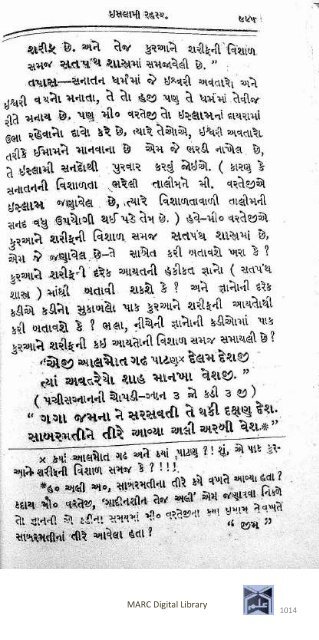 ઇસલામી રહસ્ય. ૯૪૫
શરીફ છે. અને તેજ કુરઆને શરીફની વિશાળ
સમજ સતપંથ શાસ્ત્રમાં સમજાવેલી છે."
તપાસ—સનાતન ધર્મમાં જે ઇશ્વરી અવતારો અને
ઇશ્વરી વચનો મનાતા, તે તો હજી પણ તે ધર્મમાં તેવીજ
રીતે મનાય છે. પણ મી૦ વરતેજી તો ઇસ્લામનાં દાયરામાં
ઉભા રહેવાનો દાવો કરે છે, ત્યારે તેઓએ, ઇશ્વરી અવતારો
તરીકે ઇમામને માનવાના છે એમ જે ભરડી નાખેલ છે,
તે ઇસ્લામી સનદોથી પુરવાર કરવું જોઇએ. ( કારણ કે
સનાતનની વિશાળતા ભરેલી તાલીમને મી. વરતેજીએ
ઇસ્લામ જણાવેલ છે, ત્યારે વિશાળતાવાળી તાલીમની
સનદ વધુ ઉપયોગી થઇ પડે તેમ છે. ) હવે—મી૦ વરતેજીએ
કુરઆને શરીફની વિશાળ સમજ સતપંથ શાસ્ત્રમાં છે,
એમ જે જણાવેલ છે—તે સાબેત કરી બતાવશે ખરા કે ?
કુરઆને શરીફની દરેક આયતની હકીકત જ્ઞાનો ( સતપંથ
શાસ્ત્ર ) માંથી બતાવી શકશે કે ? અને જ્ઞાનોની દરેક
કડીએ કડીનો મુકાબલો પાક કુરઆને શરીફની આયતોથી
કરી બતાવશે કે ? ભલા, નીચેની જ્ઞાનોની કડીઓમાં પાક
કુરઆને શરીફની કઇ આયતોની વિશાળ સમજ સમાયલી છે ?
"એજી આલમોત ગઢ પાટણ× દેલમ દેશજી
ત્યાં અવતરેયો શાહ માનખા વેશજી. "
(પચીસજ્ઞાનની ચોપડી—જ્ઞાન ૩ જો કડી ૩ જી)
" ગંગા જમના ને સરસવતી તે થકી દક્ષણ દેશ.
સાબરમતીને તીરે આવ્યા અલી અરબી વેશ.*"
× ક્યાં આલમોત ગઢ અને ક્યાં પાટણ ?! શું, એ પાક કુર-
આને શરીફની વિશાળ સમજ કે ? !!!
*હ૦ અલી અ૦, સાબરમતીના તીરે ક્યે વખતે આવ્યા હતા ?
કદાચ મી૦ વરતેજી, "ગાદીનશીન તેજ અલી" એમ જણાવવા નિકળે
તો જ્ઞાનની એ કડીના સમયમાં મી૦ વરતેજીના ક્યા ઇમામ તેવખતે
સાબરમતીનાં તીરે આવેલા હતા ? " જીમ "
MARC Digital Library
1014